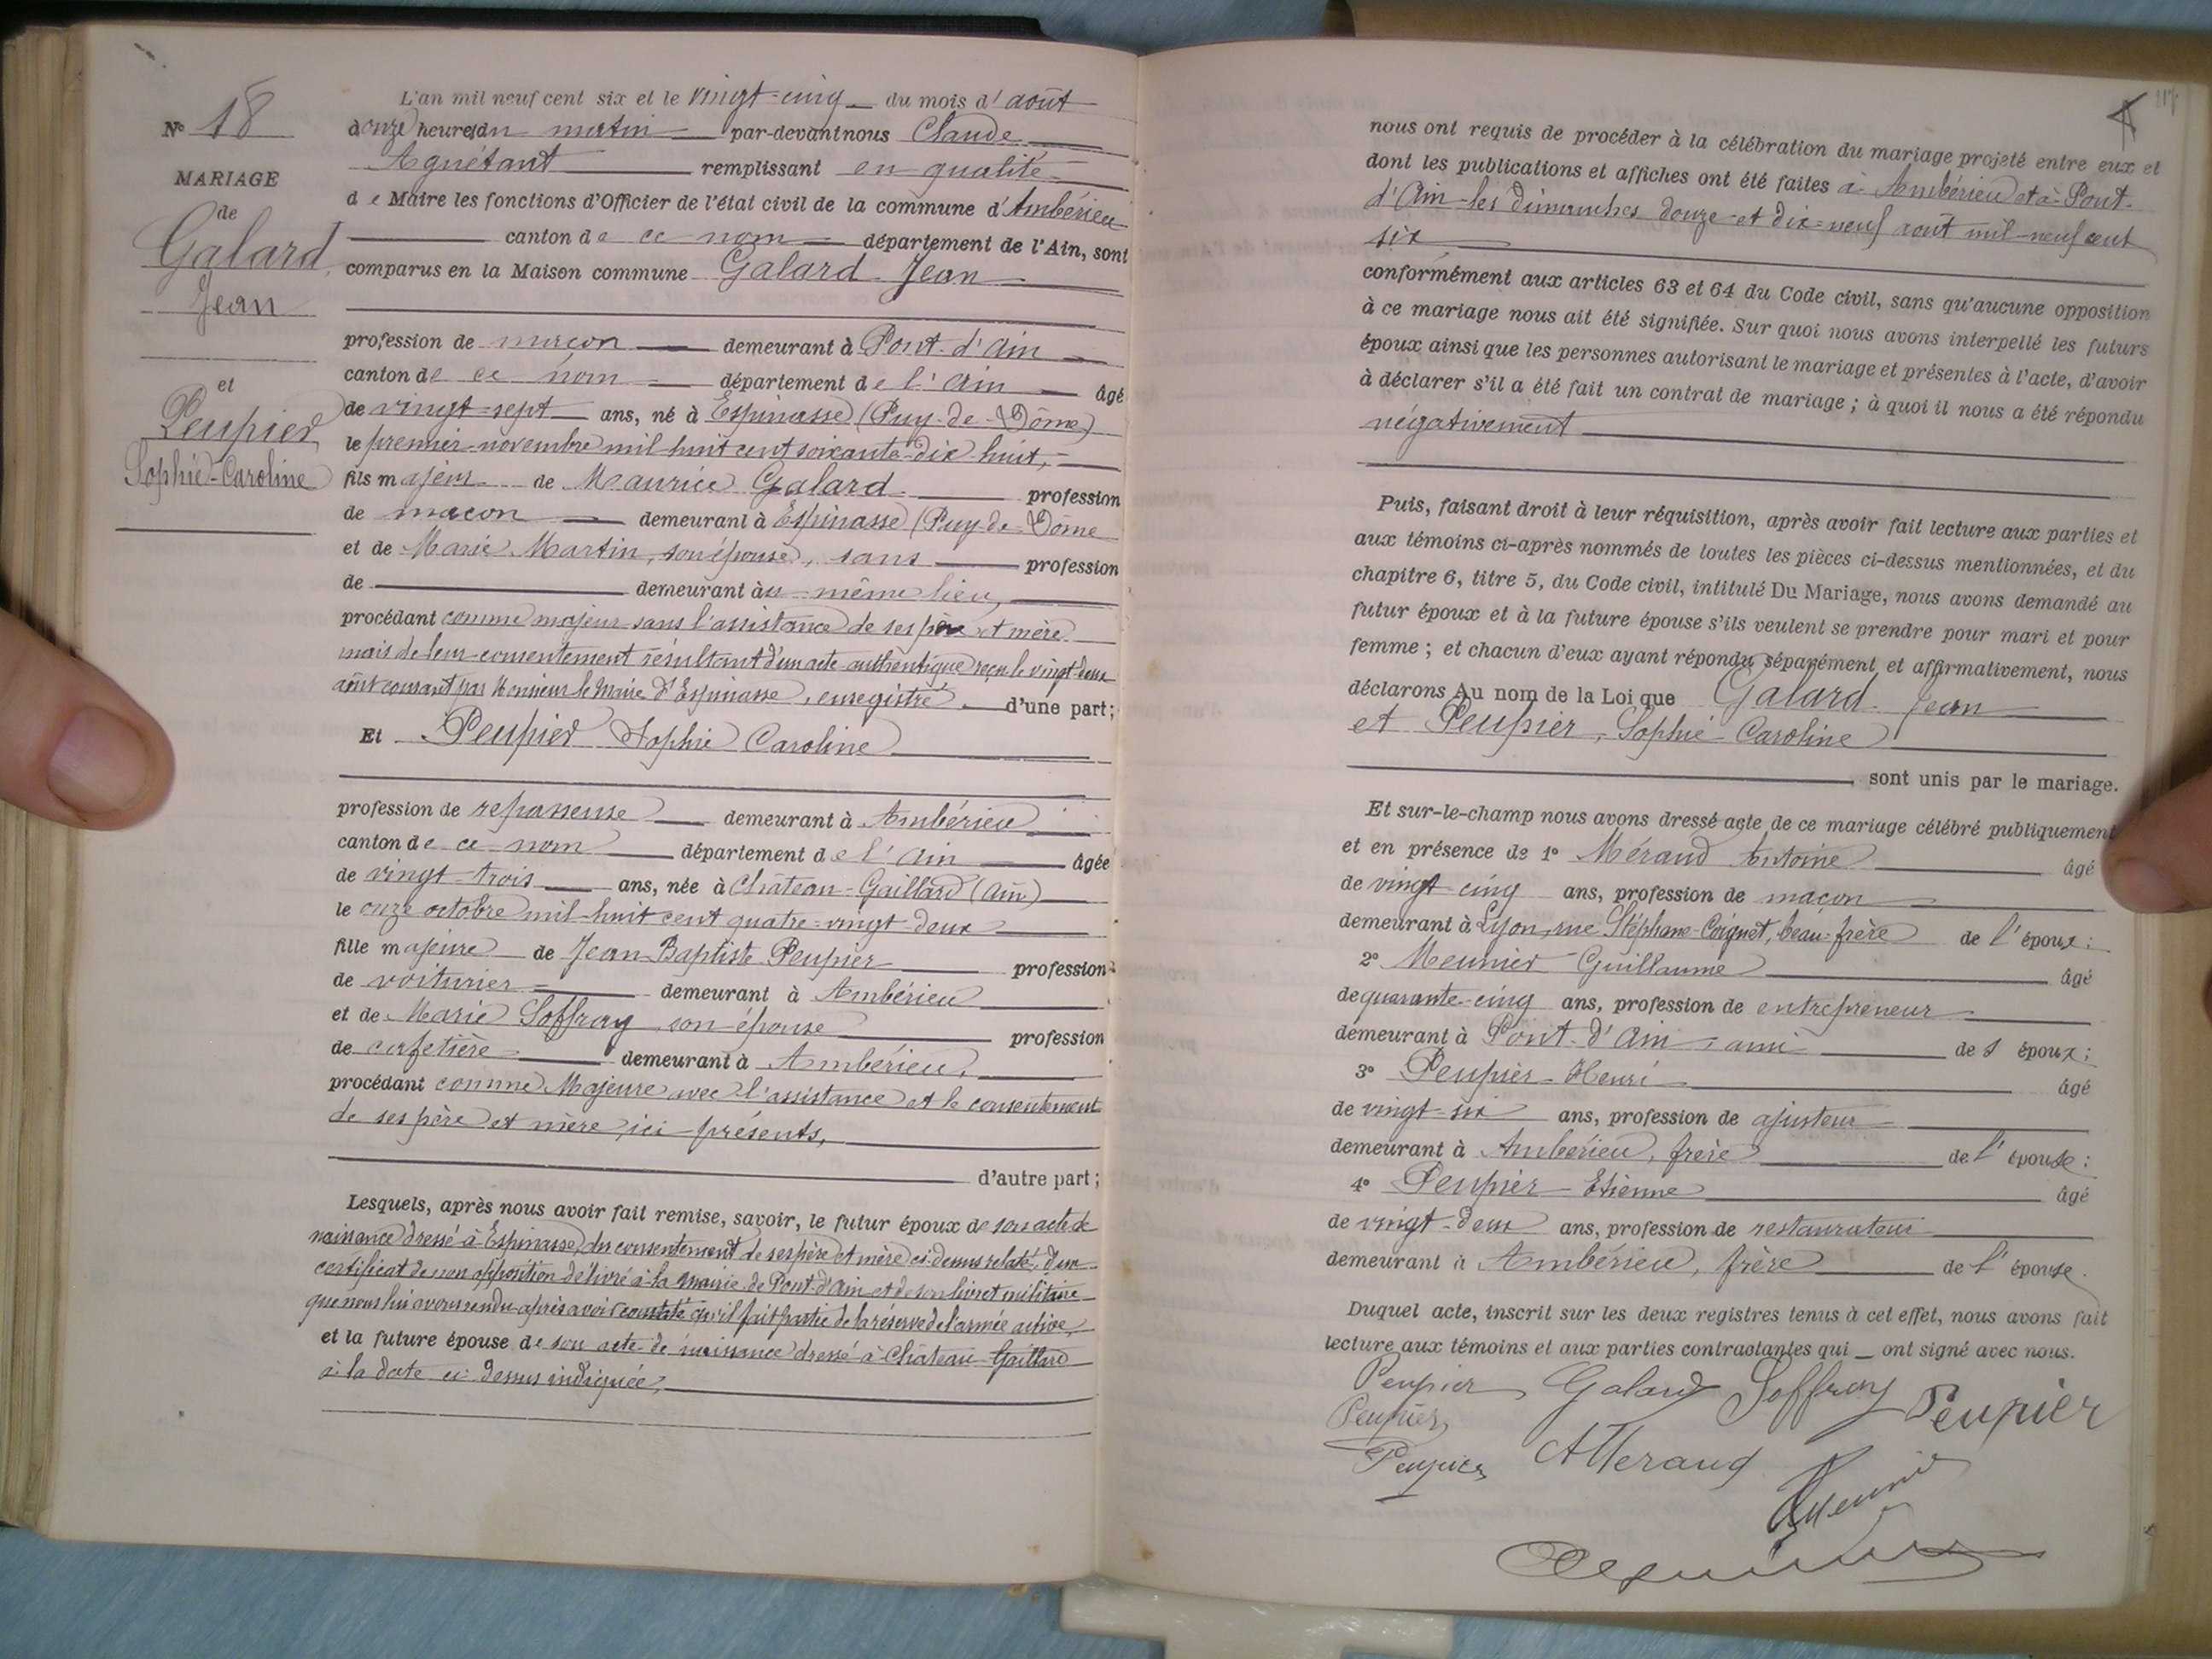 N° 18
MARIAGE
de
Galard
Jean
et
Peupier
Sophie-Caroline
L'an mil neuf cent six et le vingt-cinq du mois d'août
onze heures du matin par-devant nous Claude
Aguétant remplissant en qualité
de Maire les fonctions d'Officier de l'état civil de la commune d'Ambérieu
canton de ce nom département de l'Ain, sont
comparus en la Maison commune Galard Jean
profession de maçon demeurant à Pont-d'Ain
canton de ce nom département de l'Ain âgé
de vingt-sept ans, né à Espinasse (Puy-de-Dôme)
le premier novembre mil huit cent soixante-dix-huit,
fils majeur de Maurice Galard profession
de maçon demeurant à Espinasse (Puy-de-Dôme
et de Marie Martin, son épouse, sans profession
de demeurant au même lieu,
procédant comme majeur sans l'assistance de ses père et mère
mais de leur consentement résultant d'un acte authentique reçu le vingt-deux
août courant par Monsieur le Maire d'Espinasse, enregistré d'une part;
Et Peupier Sophie Caroline
profession de repasseuse demeurant à Ambérieu
canton de ce nom département de l'Ain âgée
de vingt-trois ans, née à Château-Gaillard (Ain)
le onze octobre mil-huit cent quatre-vingt-deux
fille majeure de Jean-Baptiste Peupier profession
de voiturier demeurant à Ambérieu
et de Marie Soffray son épouse profession
de cafetière demeurant à Ambérieu,
procédant comme Majeure avec l'assistance et le consentement
de ses père et mère, ici présents,
d'autre part;
Lesquels, après nous avoir fait remise, savoir, le futur époux de son acte de
naissance dressé à Espinasse, du consentement de ses père et mère ci-dessus relaté, d'un
certificat de non opposition délivré à la mairie de Pont-d'Ain et de son livret militaire
que nous lui avons rendu après avoir constaté qu'il fait partie de la réserve de l'armée active,
et la future épouse de son acte de naissance dressé à Château-Gaillard
à la date ci-dessus indiquée,
nous ont requis de procéder à la célébration du mariage projeté entre eux et
dont les publications et affiches ont été faites à Ambérieu et à Pont-
d'Ain les dimanches douze et dix-neuf août mil-neuf cent
six
conformément aux articles 63 et 64 du Code civil, sans qu'aucune opposition
à ce mariage nous ait été signifiée. Sur quoi nous avons interpellé les futurs
époux ainsi que les personnes autorisant le mariage et présentes à l'acte, d'avoir
à déclarer s'il a été fait un contrat de mariage; à quoi il nous a été répondu
négativement
Puis, faisant droit à leur réquisition, après avoir fait lecture aux parties et
aux témoins ci-après nommés de toutes les pièces ci-dessus mentionnées, et du
chapitre 6, titre 5, du Code civil, intitulé Du Mariage, nous avons demandé au
futur époux et à la future épouse s'ils veulent se prendre pour mari et pour
femme; et chacun d'eux ayant répondu séparément et affirmativement, nous
déclarons Au nom de la Loi que Galard Jean
et Peupier, Sophie-Caroline
sont unis par le mariage.
Et sur-le-champ nous avons dressé acte de ce mariage célébré publiquement
et en présence de 1° Méraud Antoine âgé
de vingt-cinq ans, profession de maçon
demeurant à Lyon, rue Stéphane-Coignet, beau-frère de l'époux;
2° Meunier Guillaume âgé
de quarante-cinq ans, profession de entrepreneur
demeurant à Pont-d'Ain, ami de l'époux;
3° Peupier Henri âgé
de vingt-six ans, profession de ajusteur
demeurant à Ambérieu, frère de l'épouse;
4° Peupier Etienne âgé
de vingt-deux ans, profession de restaurateur
demeurant à Ambérieu, frère de l'épouse.
Duquel acte, inscrit sur les deux registres tenus à cet effet, nous avons fait
lecture aux témoins et aux parties contractantes qui ont signé avec nous.
Peupier Galard Soffray Peupier
Peupier
Peupier AMeraud